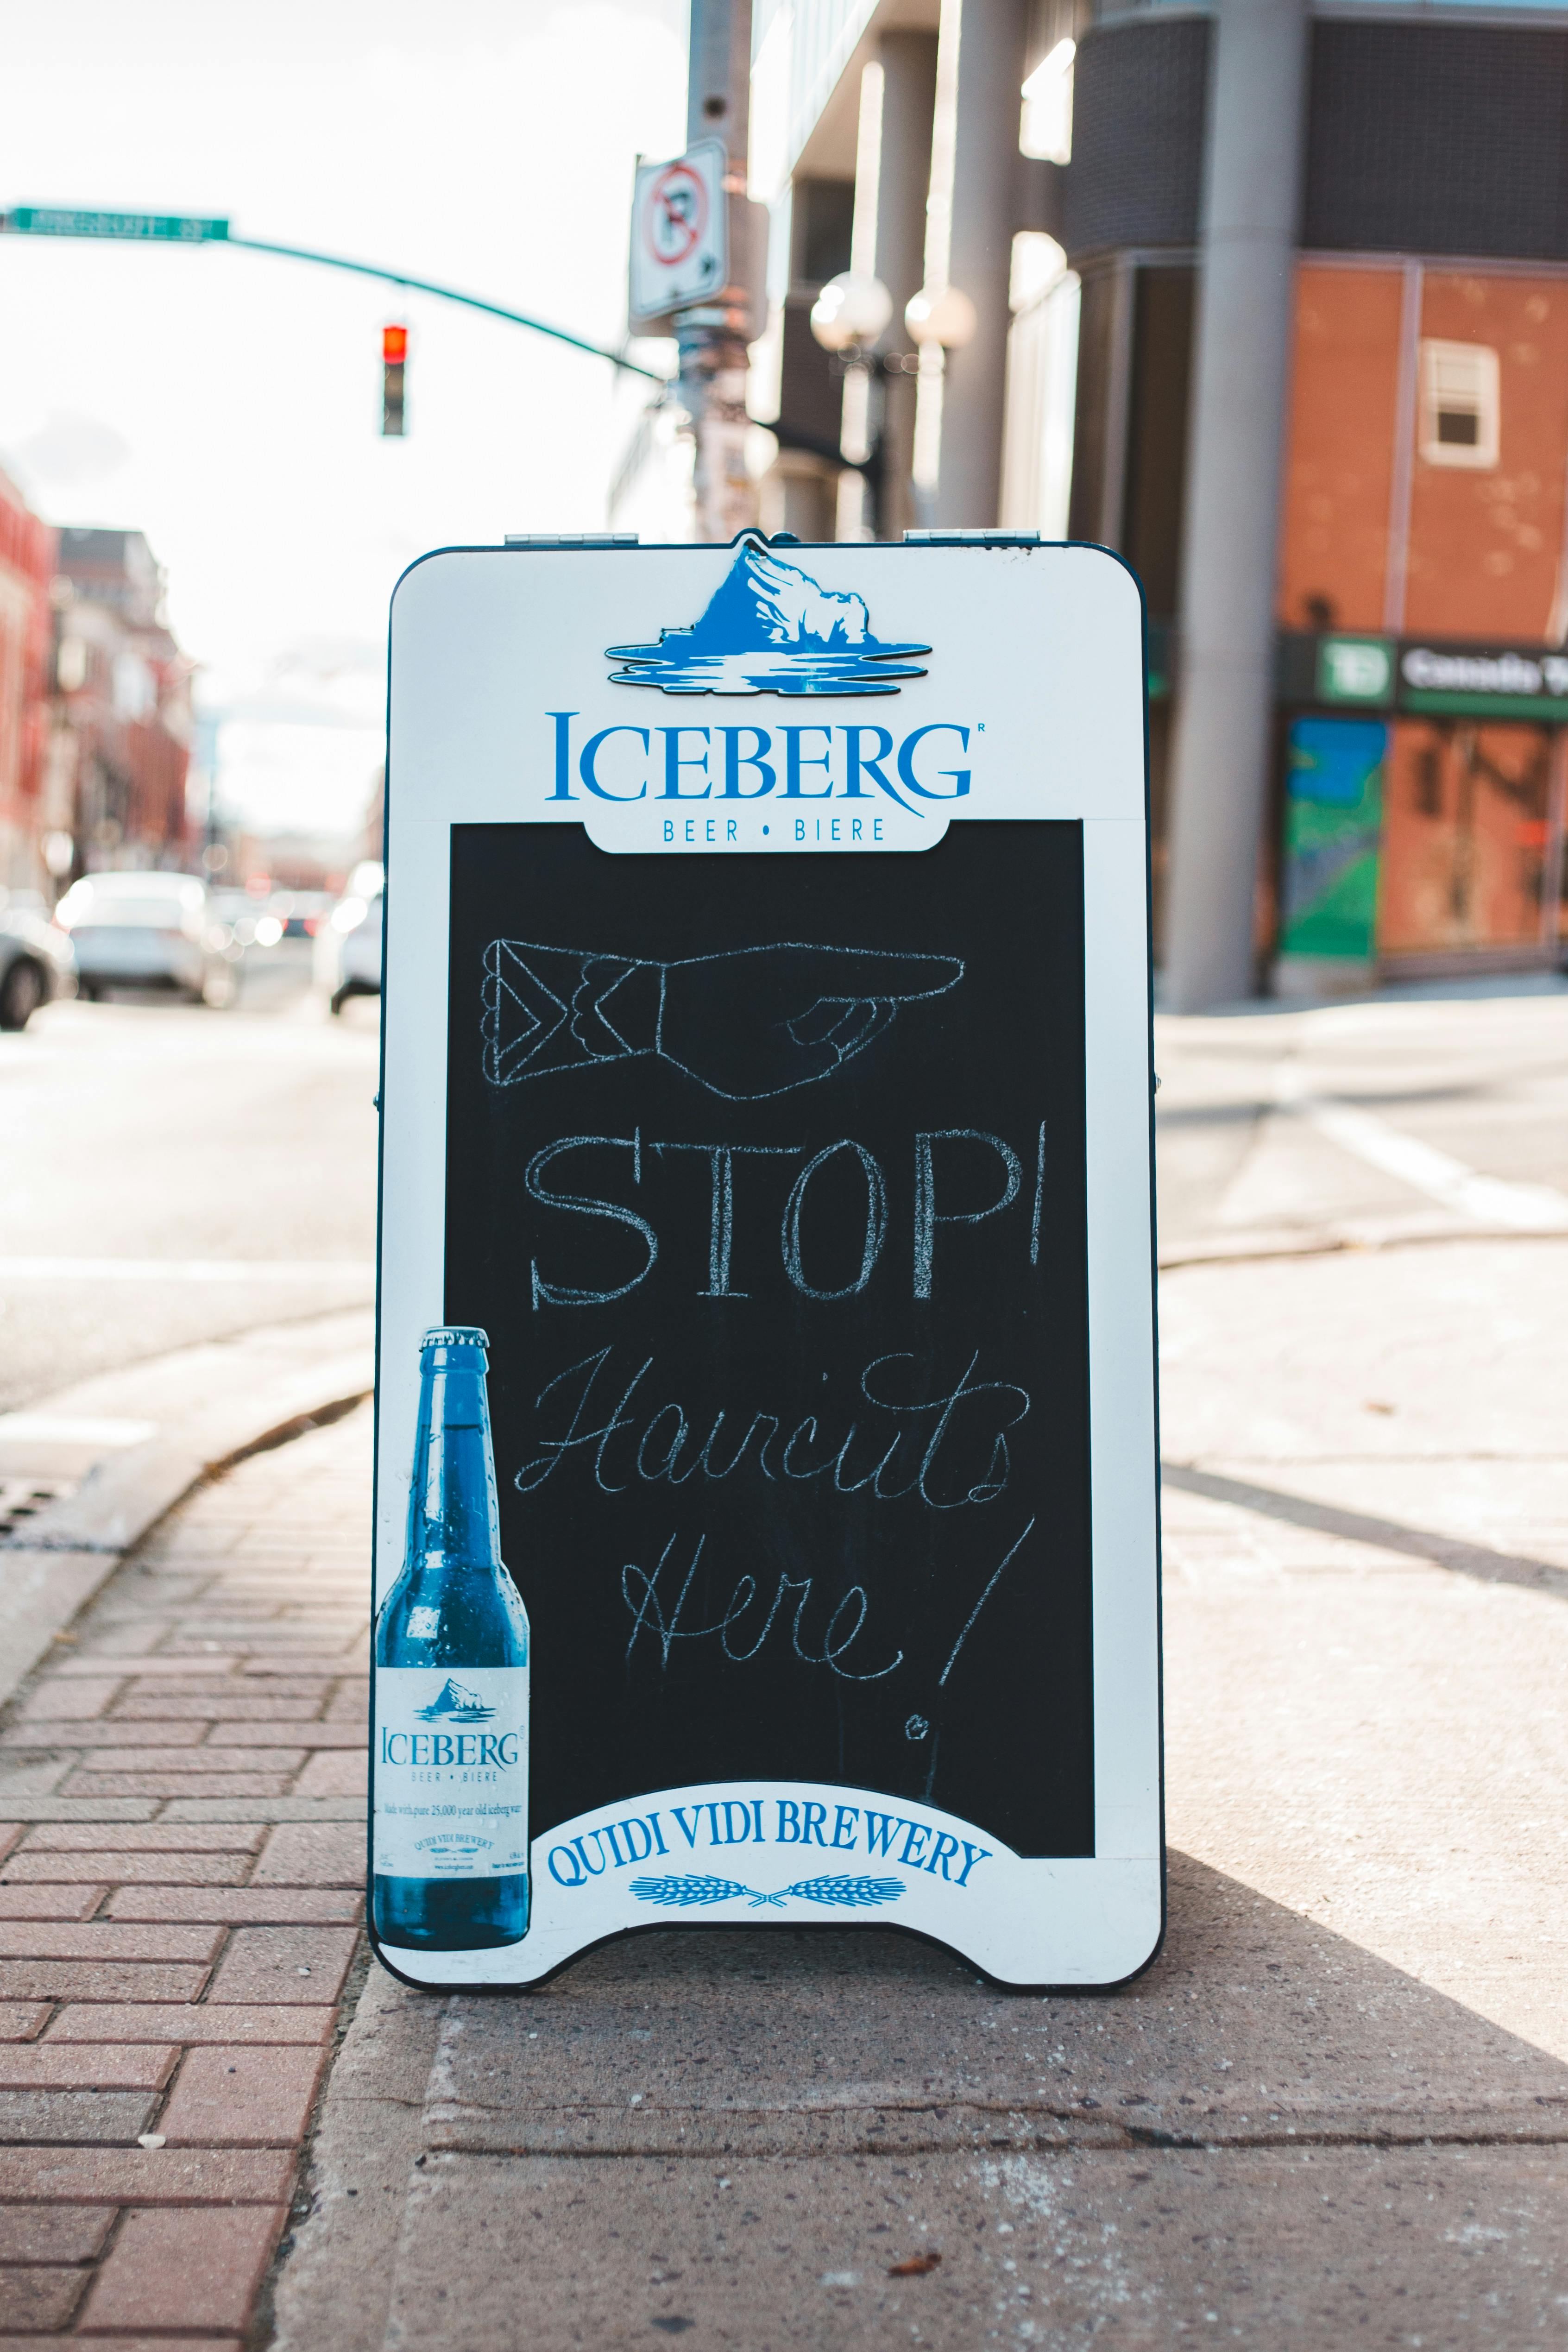 ICEBERG®
BEER • BIERE
STOP!
Haircuts
Here!
ICEBERG
BEER • BIERE
Made with pure 25,000 year old iceberg water
QUIDI VIDI BREWERY
QUIDI VIDI BREWERY
P
TD
Canada T